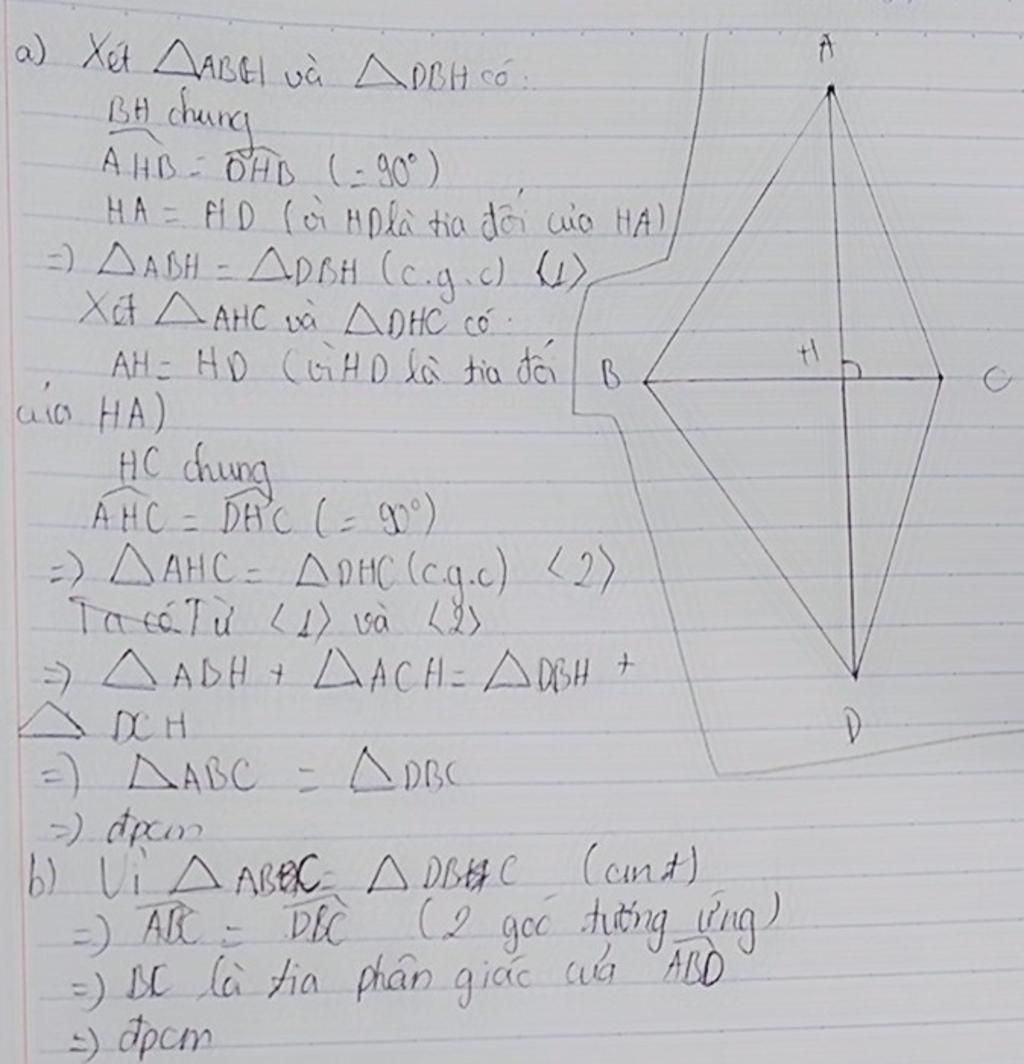 a) Xét △ABH và △DBH có:
BH chung
AHB = DHB (= 90°)
HA = HD (vì HD là tia đối của HA)
=> △ABH = △DBH (c.g.c) <1>
Xét △AHC và △DHC có:
AH = HD (vì HD là tia đối
của HA)
HC chung
AHC = DHC (= 90°)
=> △AHC = △DHC (c.g.c) <2>
Ta có Từ <1> và <2>
=> △ABH + △ACH = △DBH +
△DCH
=> △ABC = △DBC
=> đpcm
b) Vì △ABC = △DBC (cmt)
=> ABC = DBC (2 góc tương ứng)
=> BC là tia phân giác của ABD
=> đpcm
A
B
H
C
D